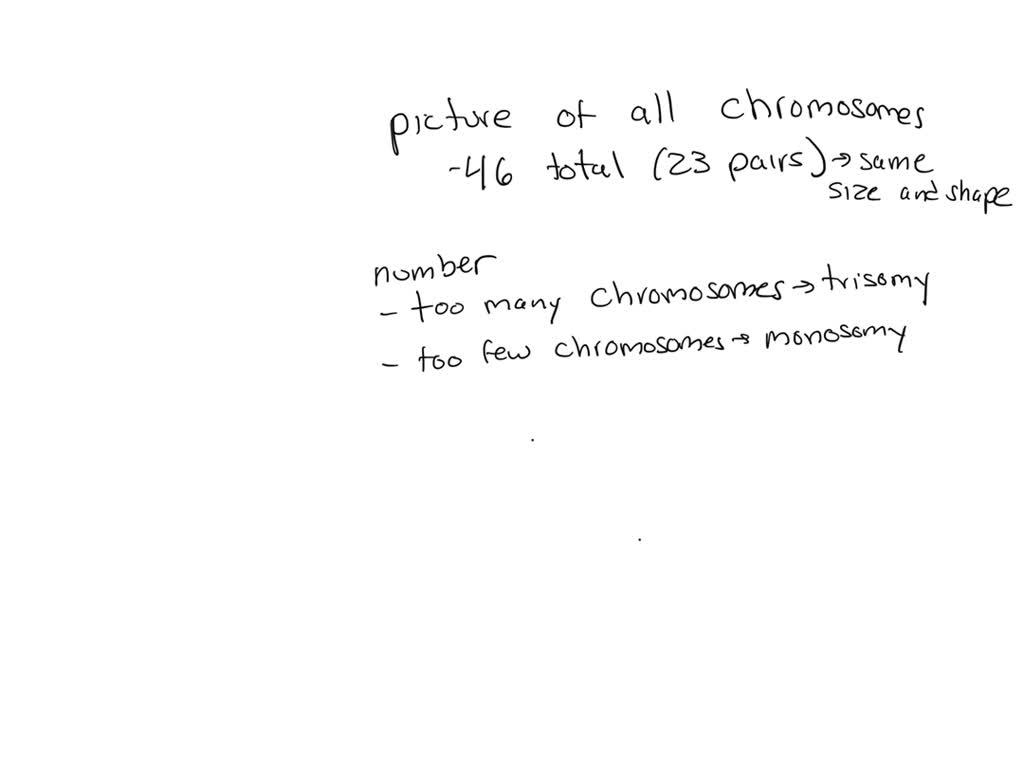 picture of all chromosomes
-46 total (23 pairs) → same
size and shape
number
- too many chromosomes → trisomy
- too few chromosomes → monosomy